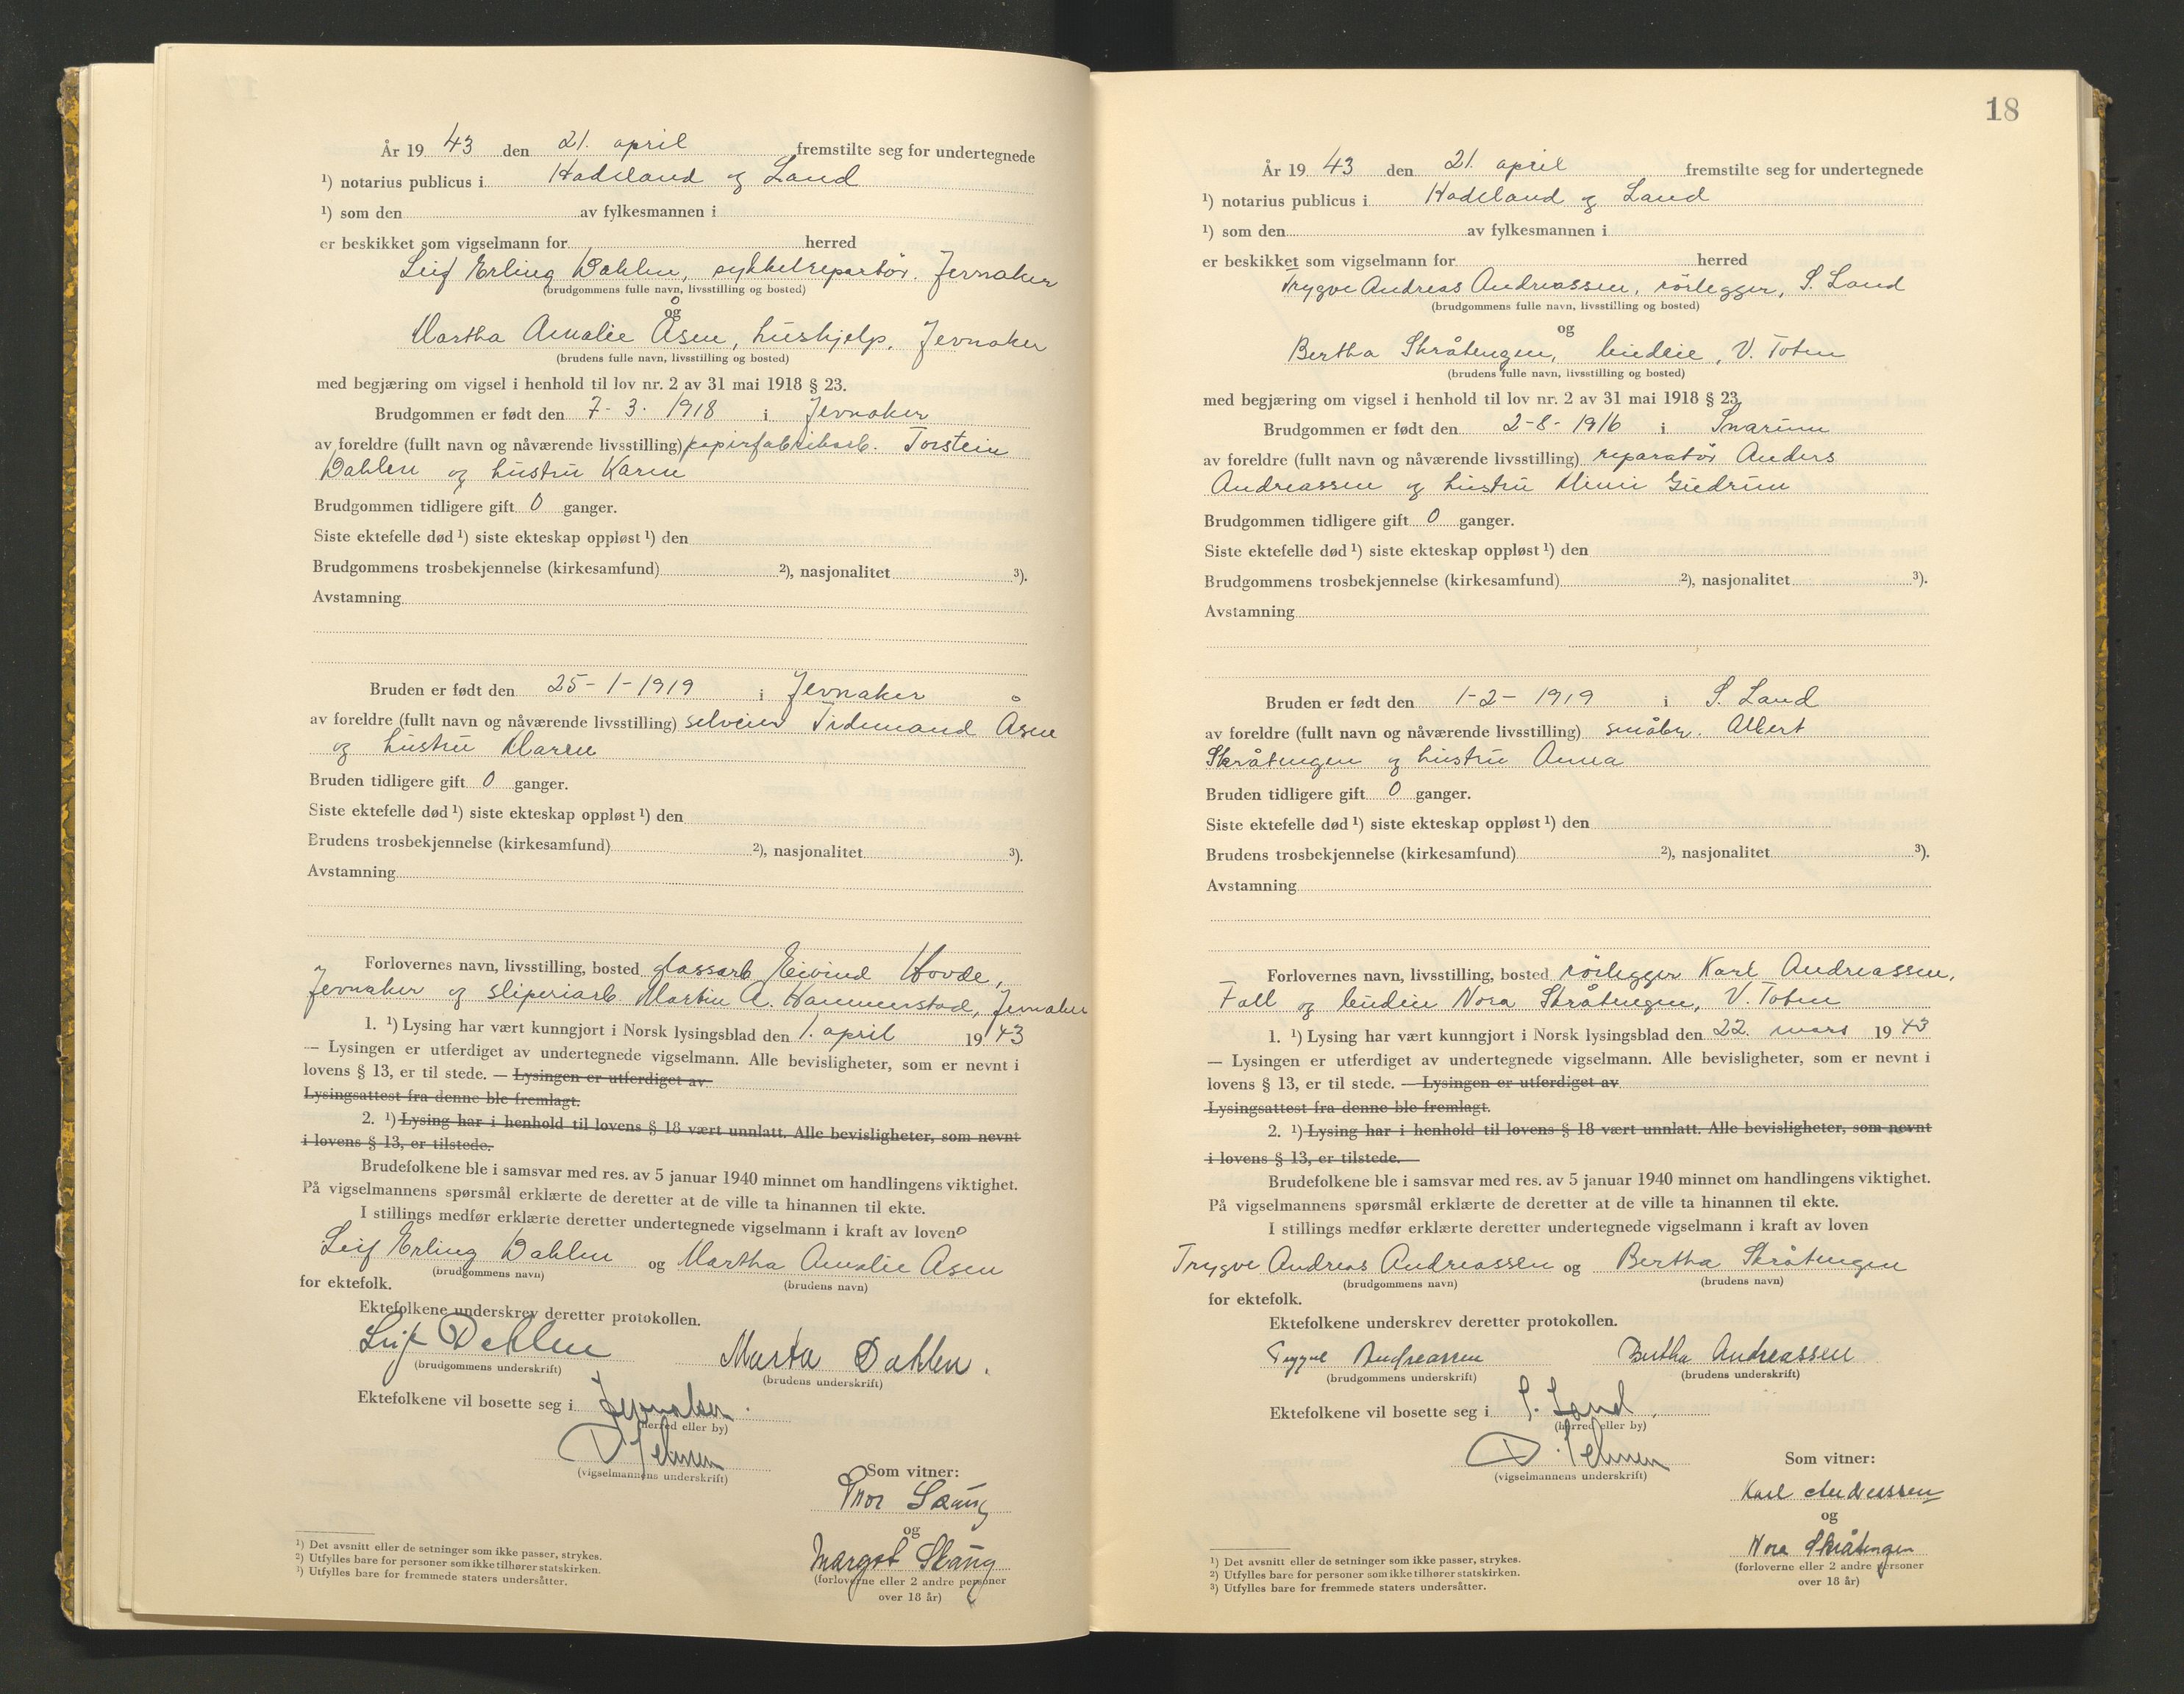 År 19 43 den 21. april fremstilte seg for undertegnede
¹) notarius publicus i Hadeland og Land
¹) som den av fylkesmannen i
er beskikket som vigselmann for herred
Leif Erling Dahlen, sykkelreparatör. Jevnaker
(brudgommens fulle navn, livsstilling og bosted)
og
Martha Amalie Åsen, hushjelp, Jevnaker
(brudens fulle navn, livsstilling og bosted)
med begjæring om vigsel i henhold til lov nr. 2 av 31 mai 1918 § 23.
Brudgommen er født den 7-3-1918 i Jevnaker
av foreldre (fullt navn og nåværende livsstilling) papirfabrikarb. Torstein
Dahlen og hustru Karen
Brudgommen tidligere gift 0 ganger.
Siste ektefelle død ¹) siste ekteskap oppløst ¹) den
Brudgommens trosbekjennelse (kirkesamfund) ²), nasjonalitet ³).
Avstamning
Bruden er født den 25-1-1919 i Jevnaker
av foreldre (fullt navn og nåværende livsstilling) selveier Tidemand Åsen
og hustru Maren
Bruden tidligere gift 0 ganger.
Siste ektefelle død ¹) siste ekteskap oppløst ¹) den
Brudens trosbekjennelse (kirkesamfund) ²), nasjonalitet ³).
Avstamning
Forlovernes navn, livsstilling, bosted glassarb Eivind Hovde,
Jevnaker og sliperiarb Martin A. Hammerstad, Jevnaker
1. ¹) Lysing har vært kunngjort i Norsk lysingsblad den 1. april 1943
— Lysingen er utferdiget av undertegnede vigselmann. Alle bevisligheter, som er nevnt i
lovens § 13, er til stede. — Lysingen er utferdiget av
Lysingsattest fra denne ble fremlagt.
2. ¹) Lysing har i henhold til lovens § 18 vært unnlatt. Alle bevisligheter, som nevnt
i lovens § 13, er tilstede.
Brudefolkene ble i samsvar med res. av 5 januar 1940 minnet om handlingens viktighet.
På vigselmannens spørsmål erklærte de deretter at de ville ta hinannen til ekte.
I stillings medfør erklærte deretter undertegnede vigselmann i kraft av loven
Leif Erling Dahlen og Martha Amalie Åsen
(brudgommens navn) (brudens navn)
for ektefolk.
Ektefolkene underskrev deretter protokollen.
Leif Dahlen Marta Dahlen.
(brudgommens underskrift) (brudens underskrift)
Ektefolkene vil bosette seg i Jevnaker.
(herred eller by)
(vigselmannens underskrift)
Som vitner:
og
Margot Skaug
(forloverne eller 2 andre personer
over 18 år)
¹) Det avsnitt eller de setninger som ikke passer, strykes.
²) Utfylles bare for personer som ikke tilhører statskirken.
³) Utfylles bare for fremmede staters undersåtter.
18
År 19 43 den 21. april fremstilte seg for undertegnede
¹) notarius publicus i Hadeland og Land
¹) som den av fylkesmannen i
er beskikket som vigselmann for herred
Trygve Andreas Andreassen, rörlegger, S. Land
(brudgommens fulle navn, livsstilling og bosted)
og
Bertha Skråtengen, budeie, V. Toten
(brudens fulle navn, livsstilling og bosted)
med begjæring om vigsel i henhold til lov nr. 2 av 31 mai 1918 § 23.
Brudgommen er født den 2-8-1916 i Snarum
av foreldre (fullt navn og nåværende livsstilling) reparatör Anders
Andreassen og hustru Mimi Gudrun
Brudgommen tidligere gift 0 ganger.
Siste ektefelle død ¹) siste ekteskap oppløst ¹) den
Brudgommens trosbekjennelse (kirkesamfund) ²), nasjonalitet ³).
Avstamning
Bruden er født den 1-2-1919 i S. Land
av foreldre (fullt navn og nåværende livsstilling) småbr. Albert
Skråtengen og hustru Anna
Bruden tidligere gift 0 ganger.
Siste ektefelle død ¹) siste ekteskap oppløst ¹) den
Brudens trosbekjennelse (kirkesamfund) ²), nasjonalitet ³).
Avstamning
Forlovernes navn, livsstilling, bosted rörlegger Karl Andreassen,
Fall og budeie Nora Skråtengen, V. Toten
1. ¹) Lysing har vært kunngjort i Norsk lysingsblad den 22. mars 1943
— Lysingen er utferdiget av undertegnede vigselmann. Alle bevisligheter, som er nevnt i
lovens § 13, er til stede. — Lysingen er utferdiget av
Lysingsattest fra denne ble fremlagt.
2. ¹) Lysing har i henhold til lovens § 18 vært unnlatt. Alle bevisligheter, som nevnt
i lovens § 13, er tilstede.
Brudefolkene ble i samsvar med res. av 5 januar 1940 minnet om handlingens viktighet.
På vigselmannens spørsmål erklærte de deretter at de ville ta hinannen til ekte.
I stillings medfør erklærte deretter undertegnede vigselmann i kraft av loven
Trygve Andreas Andreassen og Bertha Skråtengen
(brudgommens navn) (brudens navn)
for ektefolk.
Ektefolkene underskrev deretter protokollen.
Trygve Andreassen Bertha Andreassen
(brudgommens underskrift) (brudens underskrift)
Ektefolkene vil bosette seg i S. Land.
(herred eller by)
(vigselmannens underskrift)
Som vitner:
Karl Andreassen
og
Nora Skråtengen
(forloverne eller 2 andre personer
over 18 år)
¹) Det avsnitt eller de setninger som ikke passer, strykes.
²) Utfylles bare for personer som ikke tilhører statskirken.
³) Utfylles bare for fremmede staters undersåtter.